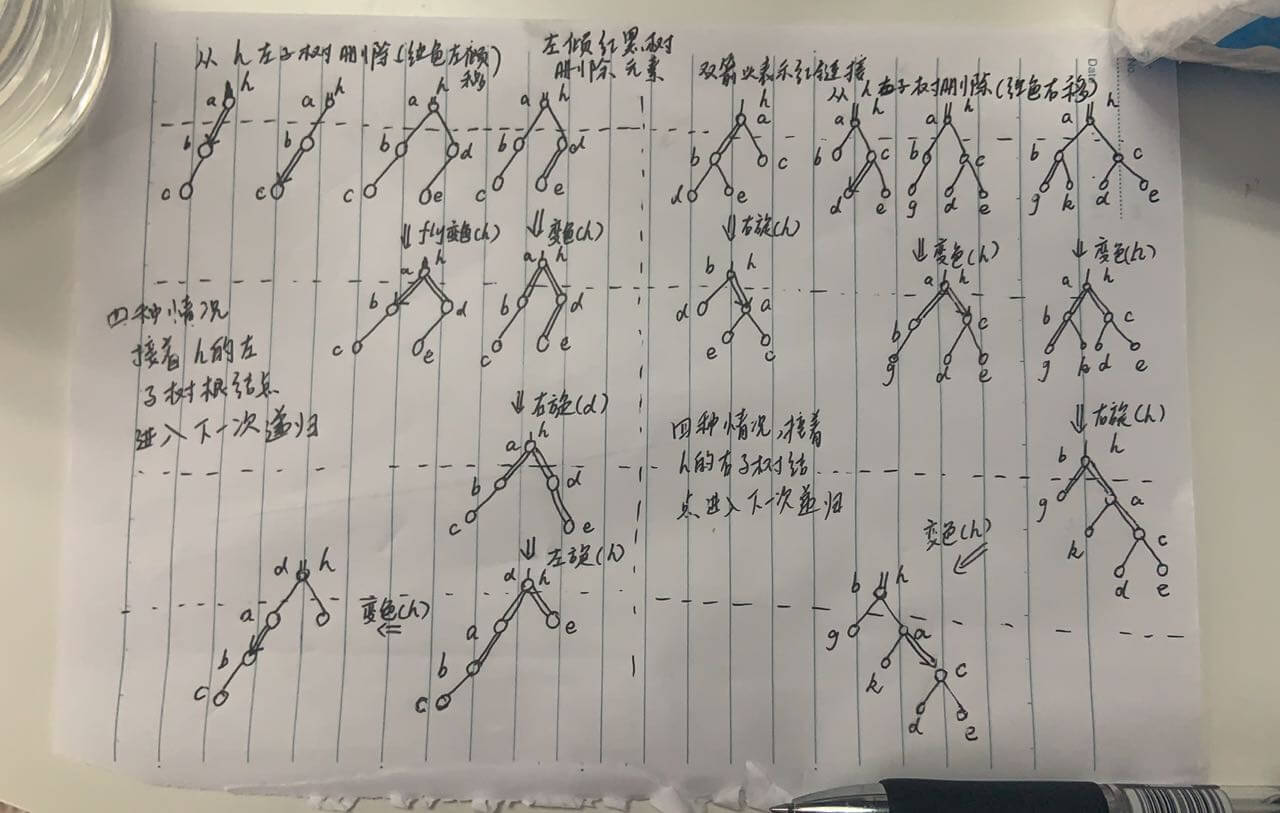 从 h 左子树删除(红色左倾
移)
左倾红黑树
删除元素
双箭头表示红链接
从 h 右子树删除(红色右移)
a h
b
c
a h
b
c
a h
b d
c e
a h
b d
c e
h
a
b c
d e
a h
b c
d e
a h
b c
g d e
a h
b c
g k d e
⇓ fly变色(h)
⇓ 变色(h)
⇓ 右旋(h)
⇓ 变色(h)
⇓ 变色(h)
a h
b d
c e
a h
b d
c e
b h
d a
e c
a h
b c
g d e
a h
b c
g k d e
四种情况
接着 h的左
子树根结点
进入下一次递归
⇓ 右旋(d)
a h
b d
c e
四种情况,接着
h的右子树结
点进入下一次递归
⇓ 右旋(h)
b h
g a
k c
d e
⇓ 左旋(h)
d h
a e
b
c
变色(h)
⇐
d h
a
b
c
变色(h)
b h
g a
k c
d e